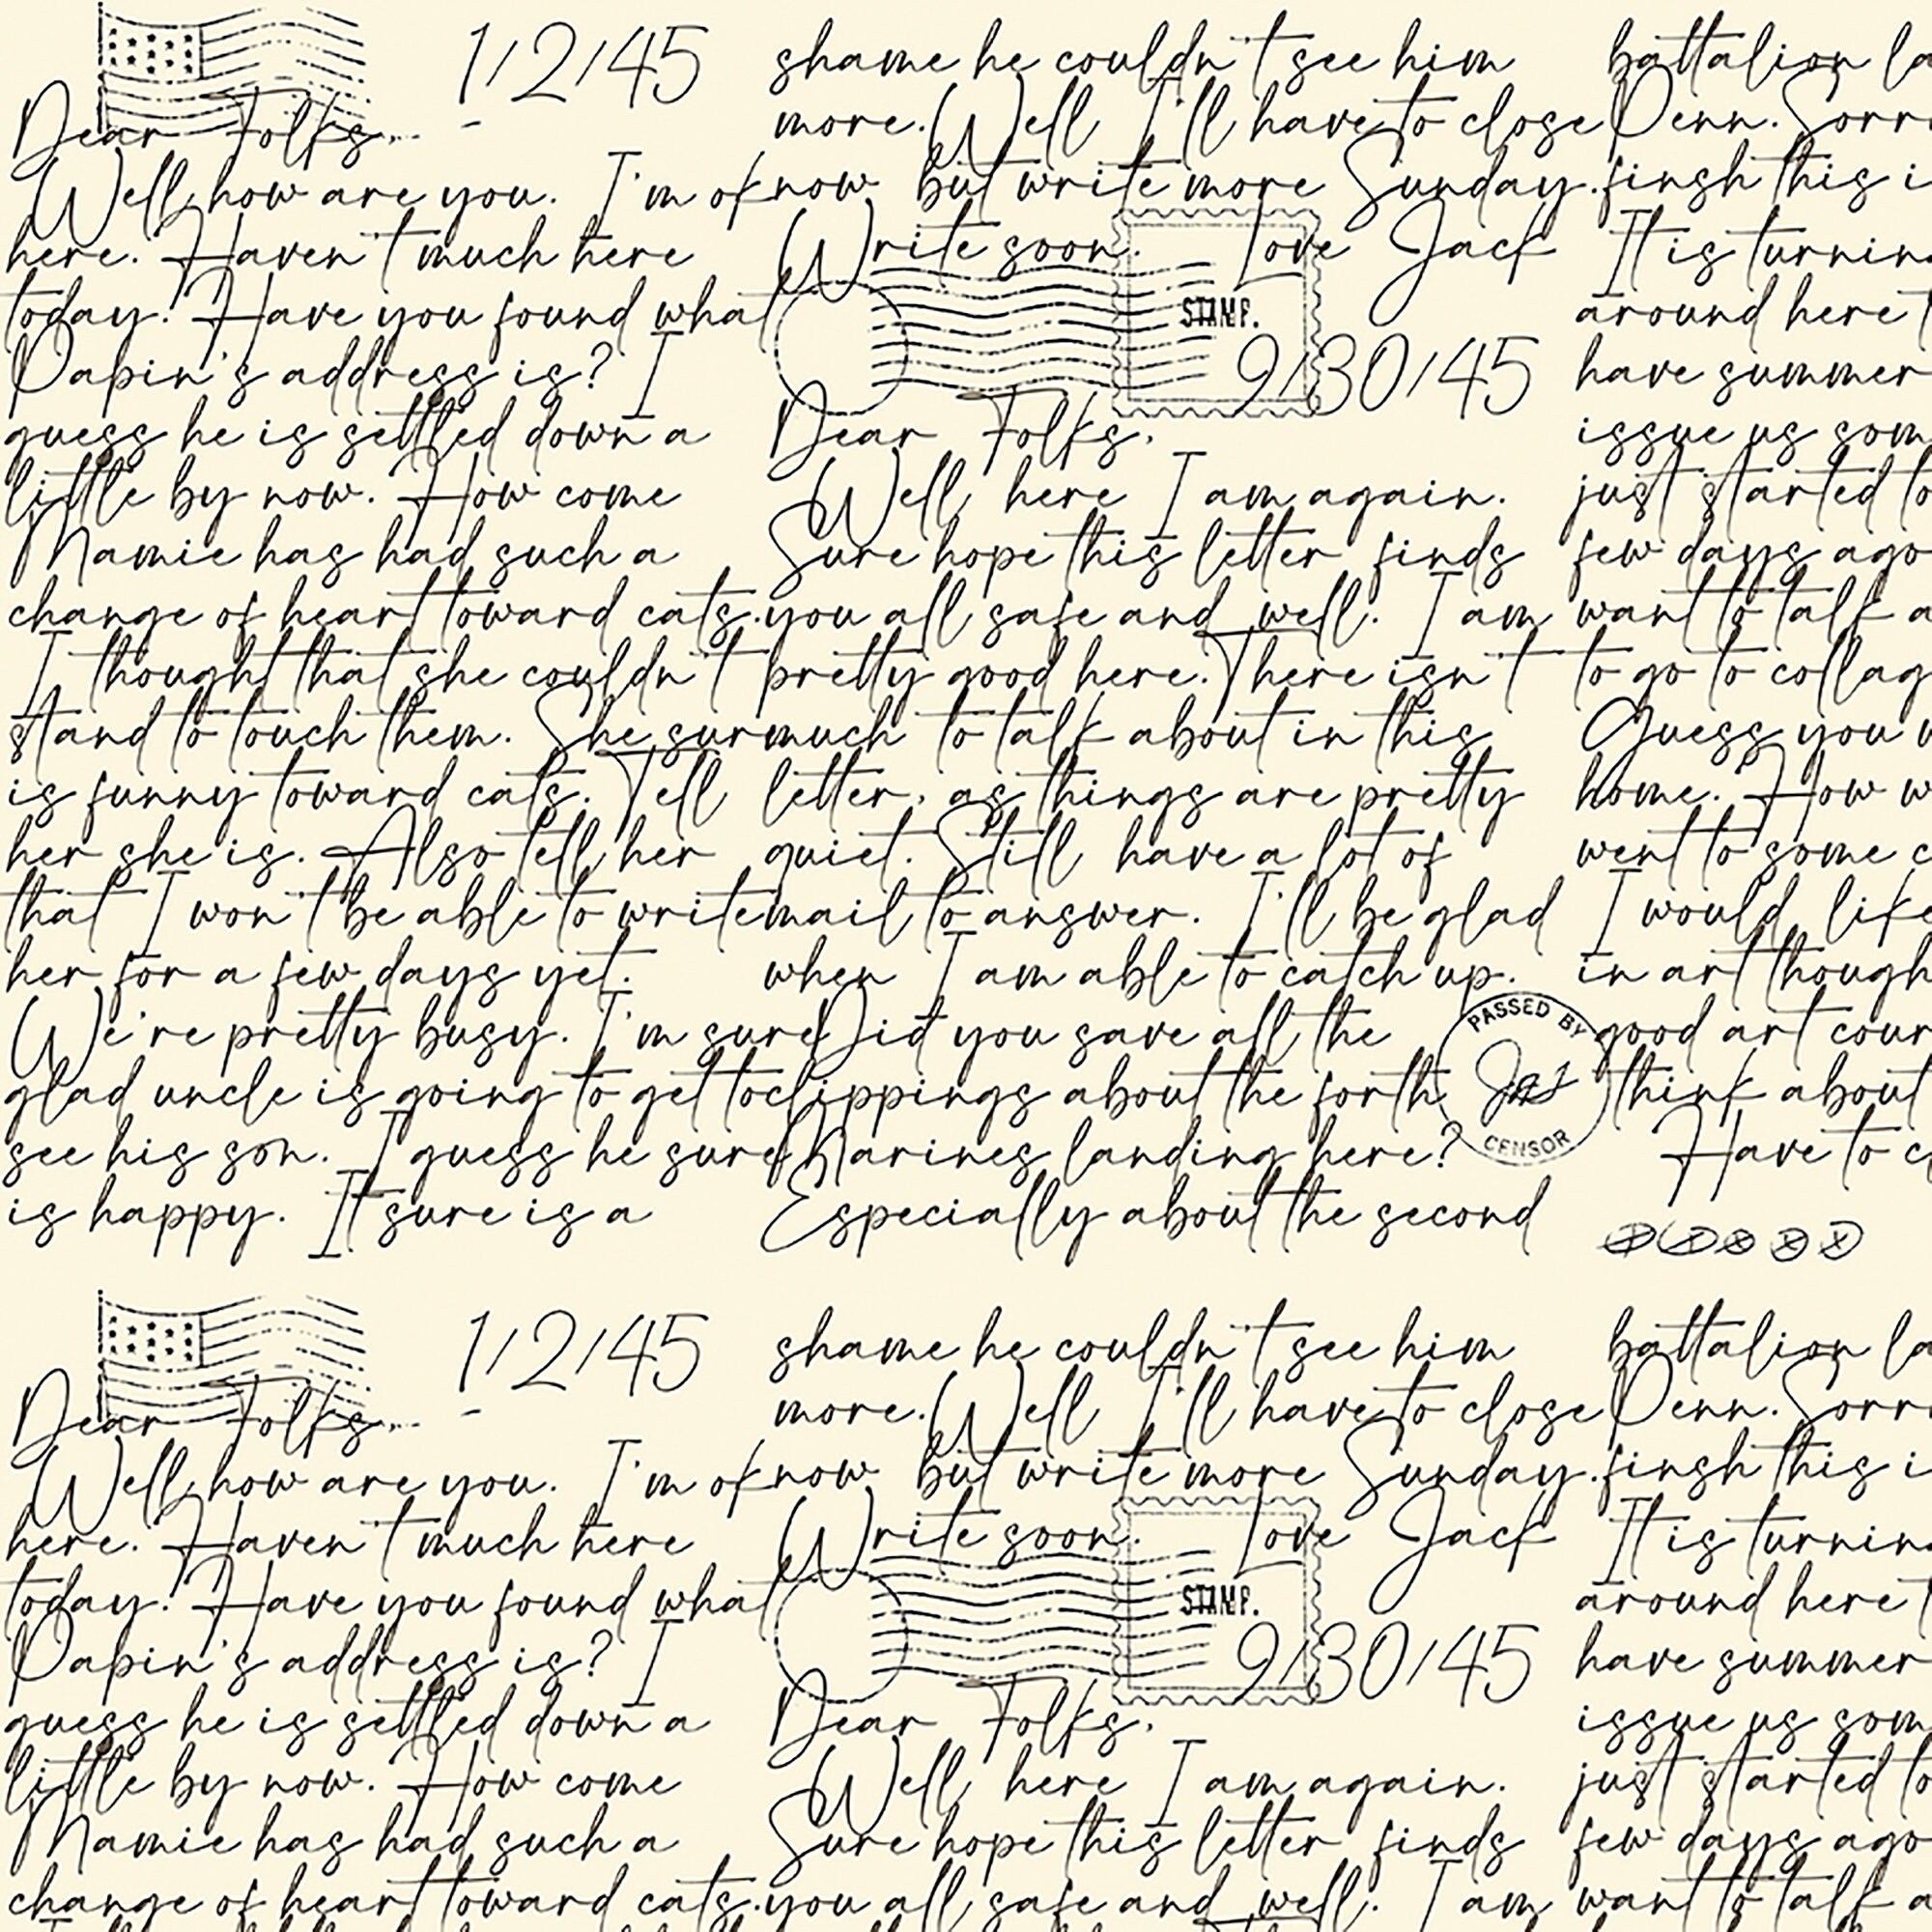 1/2/45
Dear Folks,
Well, how are you. I'm ok
here. Haven't much here
today. Have you found what
Papin's address is? I
guess he is settled down a
little by now. How come
Mamie has had such a
change of heart toward cats.
I thought that she couldn't
stand to touch them. She sur
is funny toward cats. Tell
her she is. Also tell her
that I won't be able to write
her for a few days yet.
We're pretty busy. I'm sure
glad uncle is going to get to
see his son. I guess he sure
is happy. It sure is a
1/2/45
Dear Folks,
Well, how are you. I'm ok
here. Haven't much here
today. Have you found what
Papin's address is? I
guess he is settled down a
little by now. How come
Mamie has had such a
change of heart toward cats.
shame he couldn't see him
more. Well I'll have to close
now but write more Sunday.
Write soon. Love Jack
STAMP.
9/30/45
Dear Folks,
Well, here I am again.
Sure hope this letter finds
you all safe and well. I am
pretty good here. There isn't
much to talk about in this
letter, as things are pretty
quiet. Still have a lot of
mail to answer. I'll be glad
when I am able to catch up.
Did you save all the
clippings about the forth
Marines landing here?
Especially about the second
PASSED BY
CENSOR
shame he couldn't see him
more. Well I'll have to close
now but write more Sunday.
Write soon. Love Jack
STAMP.
9/30/45
Dear Folks,
Well, here I am again.
Sure hope this letter finds
you all safe and well. I am
battalion la
Penn. Sorr
finsh this i
It is turnin
around here t
have summer
issue us som
just started to
few days ago
want to talk a
to go to collag
Guess you w
home. How w
went to some c
I would like
in art though
good art cour
think about
Have to c
battalion la
Penn. Sorr
finsh this i
It is turnin
around here t
have summer
issue us som
just started to
few days ago
want to talk a